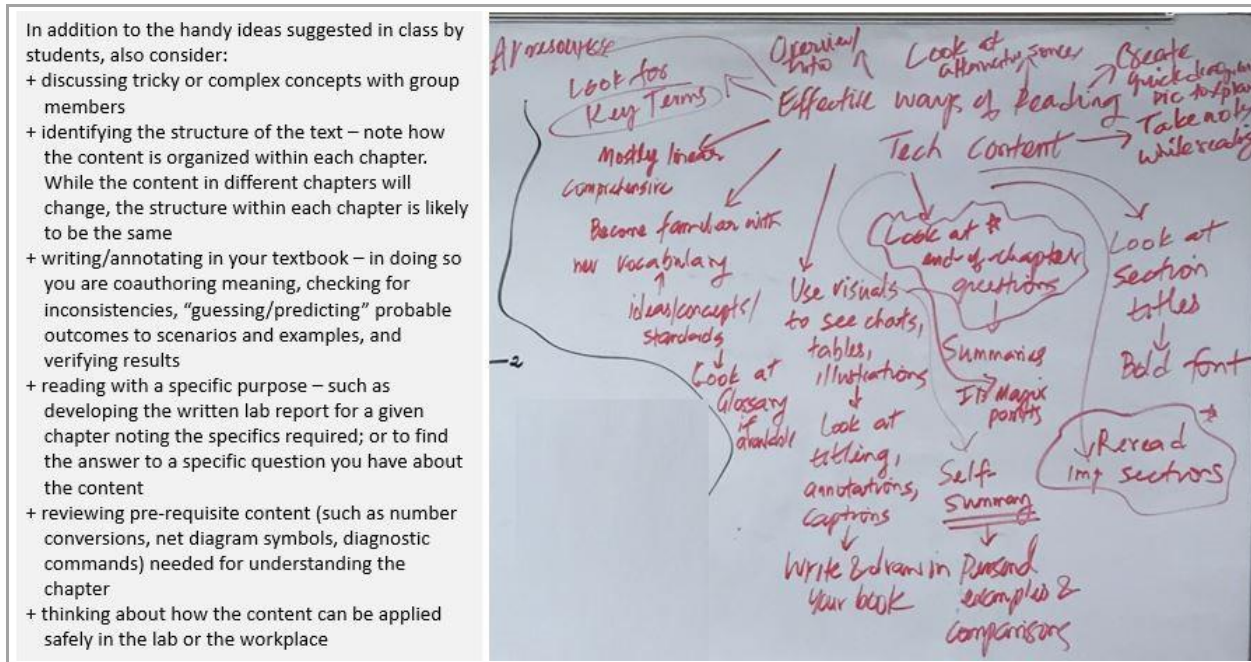 In addition to the handy ideas suggested in class by
students, also consider:
+ discussing tricky or complex concepts with group
members
+ identifying the structure of the text – note how
the content is organized within each chapter.
While the content in different chapters will
change, the structure within each chapter is likely
to be the same
+ writing/annotating in your textbook – in doing so
you are coauthoring meaning, checking for
inconsistencies, “guessing/predicting” probable
outcomes to scenarios and examples, and
verifying results
+ reading with a specific purpose – such as
developing the written lab report for a given
chapter noting the specifics required; or to find
the answer to a specific question you have about
the content
+ reviewing pre-requisite content (such as number
conversions, net diagram symbols, diagnostic
commands) needed for understanding the
chapter
+ thinking about how the content can be applied
safely in the lab or the workplace
Effective ways of Reading
Tech Content
Overview/
Intro
Look at
alternative
Create
quick
Take notes
while reading
Look for
Key Terms
Mostly linear
comprehensive
Become familiar with
new vocabulary
ideas/concepts/
standards
Look at
Glossary
if
available
Use visuals
to see charts,
tables,
illustrations
Look at
titling,
annotations,
captions
Write & draw in
your book
Look at *
end-of-chapter
questions
Summaries
points
Self-
Summary
Personal
examples &
comparisons
Look at
section
titles
Bold font
Reread
imp sections
*
2